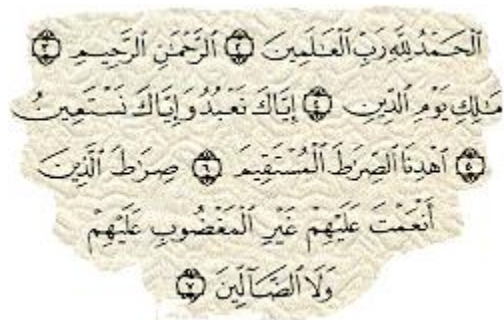 ٱلْحَمْدُ لِلَّهِ رَبِّ ٱلْعَٰلَمِينَ ٢ ٱلرَّحْمَٰنِ ٱلرَّحِيمِ ٣
مَٰلِكِ يَوْمِ ٱلدِّينِ ٤ إِيَّاكَ نَعْبُدُ وَإِيَّاكَ نَسْتَعِينُ
٥ ٱهْدِنَا ٱلصِّرَٰطَ ٱلْمُسْتَقِيمَ ٦ صِرَٰطَ ٱلَّذِينَ
أَنْعَمْتَ عَلَيْهِمْ غَيْرِ ٱلْمَغْضُوبِ عَلَيْهِمْ
وَلَا ٱلضَّآلِّينَ ٧